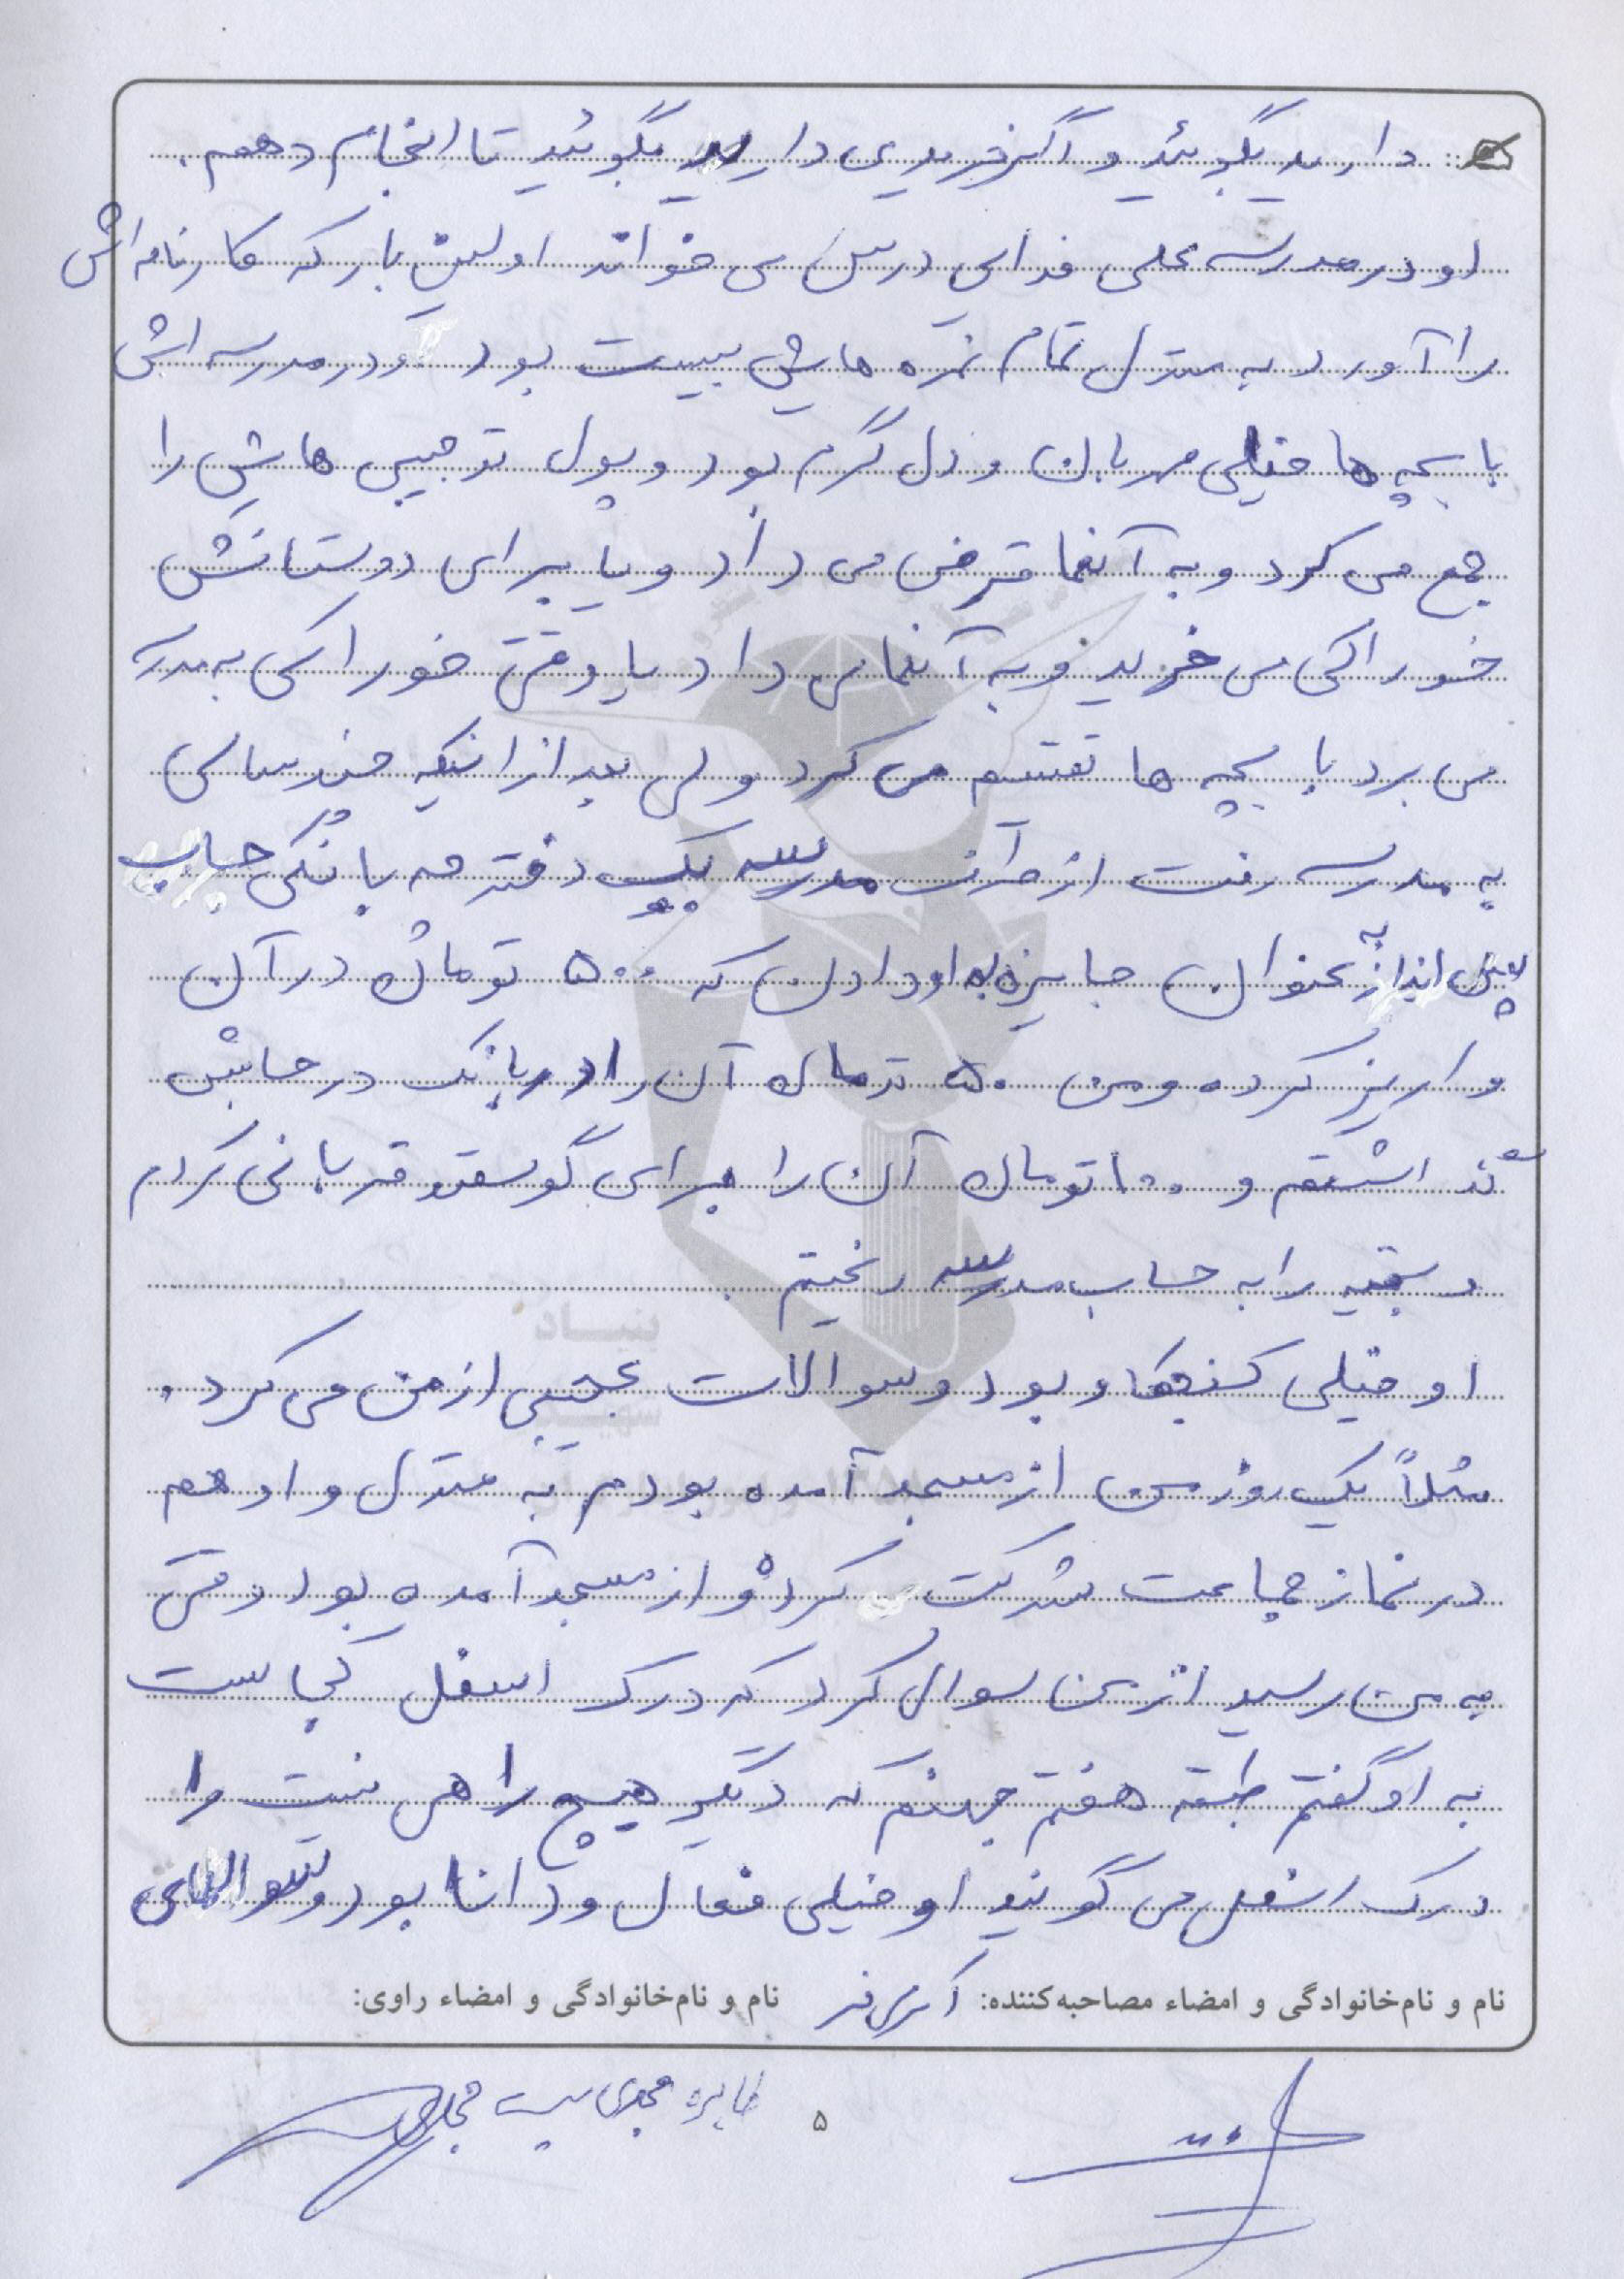 دارید بگوئید و اگر خریدی دارید بگوئید تا انجام دهم.
او در مدرسه علی فدایی درس می خواند اولین بار که کارنامه اش
را آورد به منزل تمام نمره هایش بیست بود و در مدرسه اش
با بچه ها خیلی مهربان و دل گرم بود و پول توجیبی هایش را
جمع می کرد و به آنها قرض می داد و یا برای دوستانش
خوراکی می خرید و به آنها می داد یا وقتی خوراکی به مدرسه
می برد با بچه ها تقسیم می کرد ولی بعد از اینکه چند سالی
به مدرسه رفت از طرف مدرسه یک دفترچه بانکی حساب
پس انداز به عنوان جایزه به او دادن که ۵۰۰ تومان در آن
واریز کرده و من ۵۰ تومان آن را در بانک در حسابش
گذاشتم و ۱۰۰ تومان آن را برای گوسفند قربانی کردم
و بقیه را به حساب مدرسه ریختم
او خیلی کنجکاو بود و سوالات عجیبی از من می کرد.
مثلاً یک روز من از مسجد آمده بودم به منزل و او هم
در نماز جماعت شرکت کرده و از مسجد آمده بود وقتی
به من رسید از من سوال کرد که درک اسفل کجاست
به او گفتم طبقه هفتم جهنم که دیگر هیچ راهی نیست را
درک اسفل می گویند او خیلی فعال و دانا بود و سوالهای
نام و نام‌خانوادگی و امضاء مصاحبه‌کننده: نام و نام‌خانوادگی و امضاء راوی:
طاهره
۵